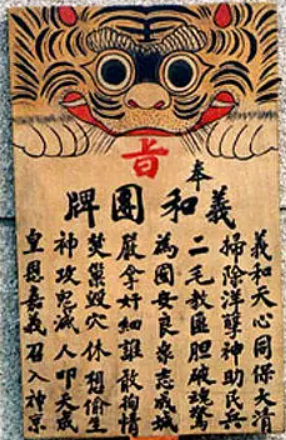 奉
旨
義和團牌
義和天心同保大清
掃除洋孽神助民兵
二毛教匪胆破魂驚
為國安良衆志成城
嚴拿奸細誰敢狥情
焚巢毀穴休想偷生
神攻鬼滅人叩天成
皇恩嘉義召入神京